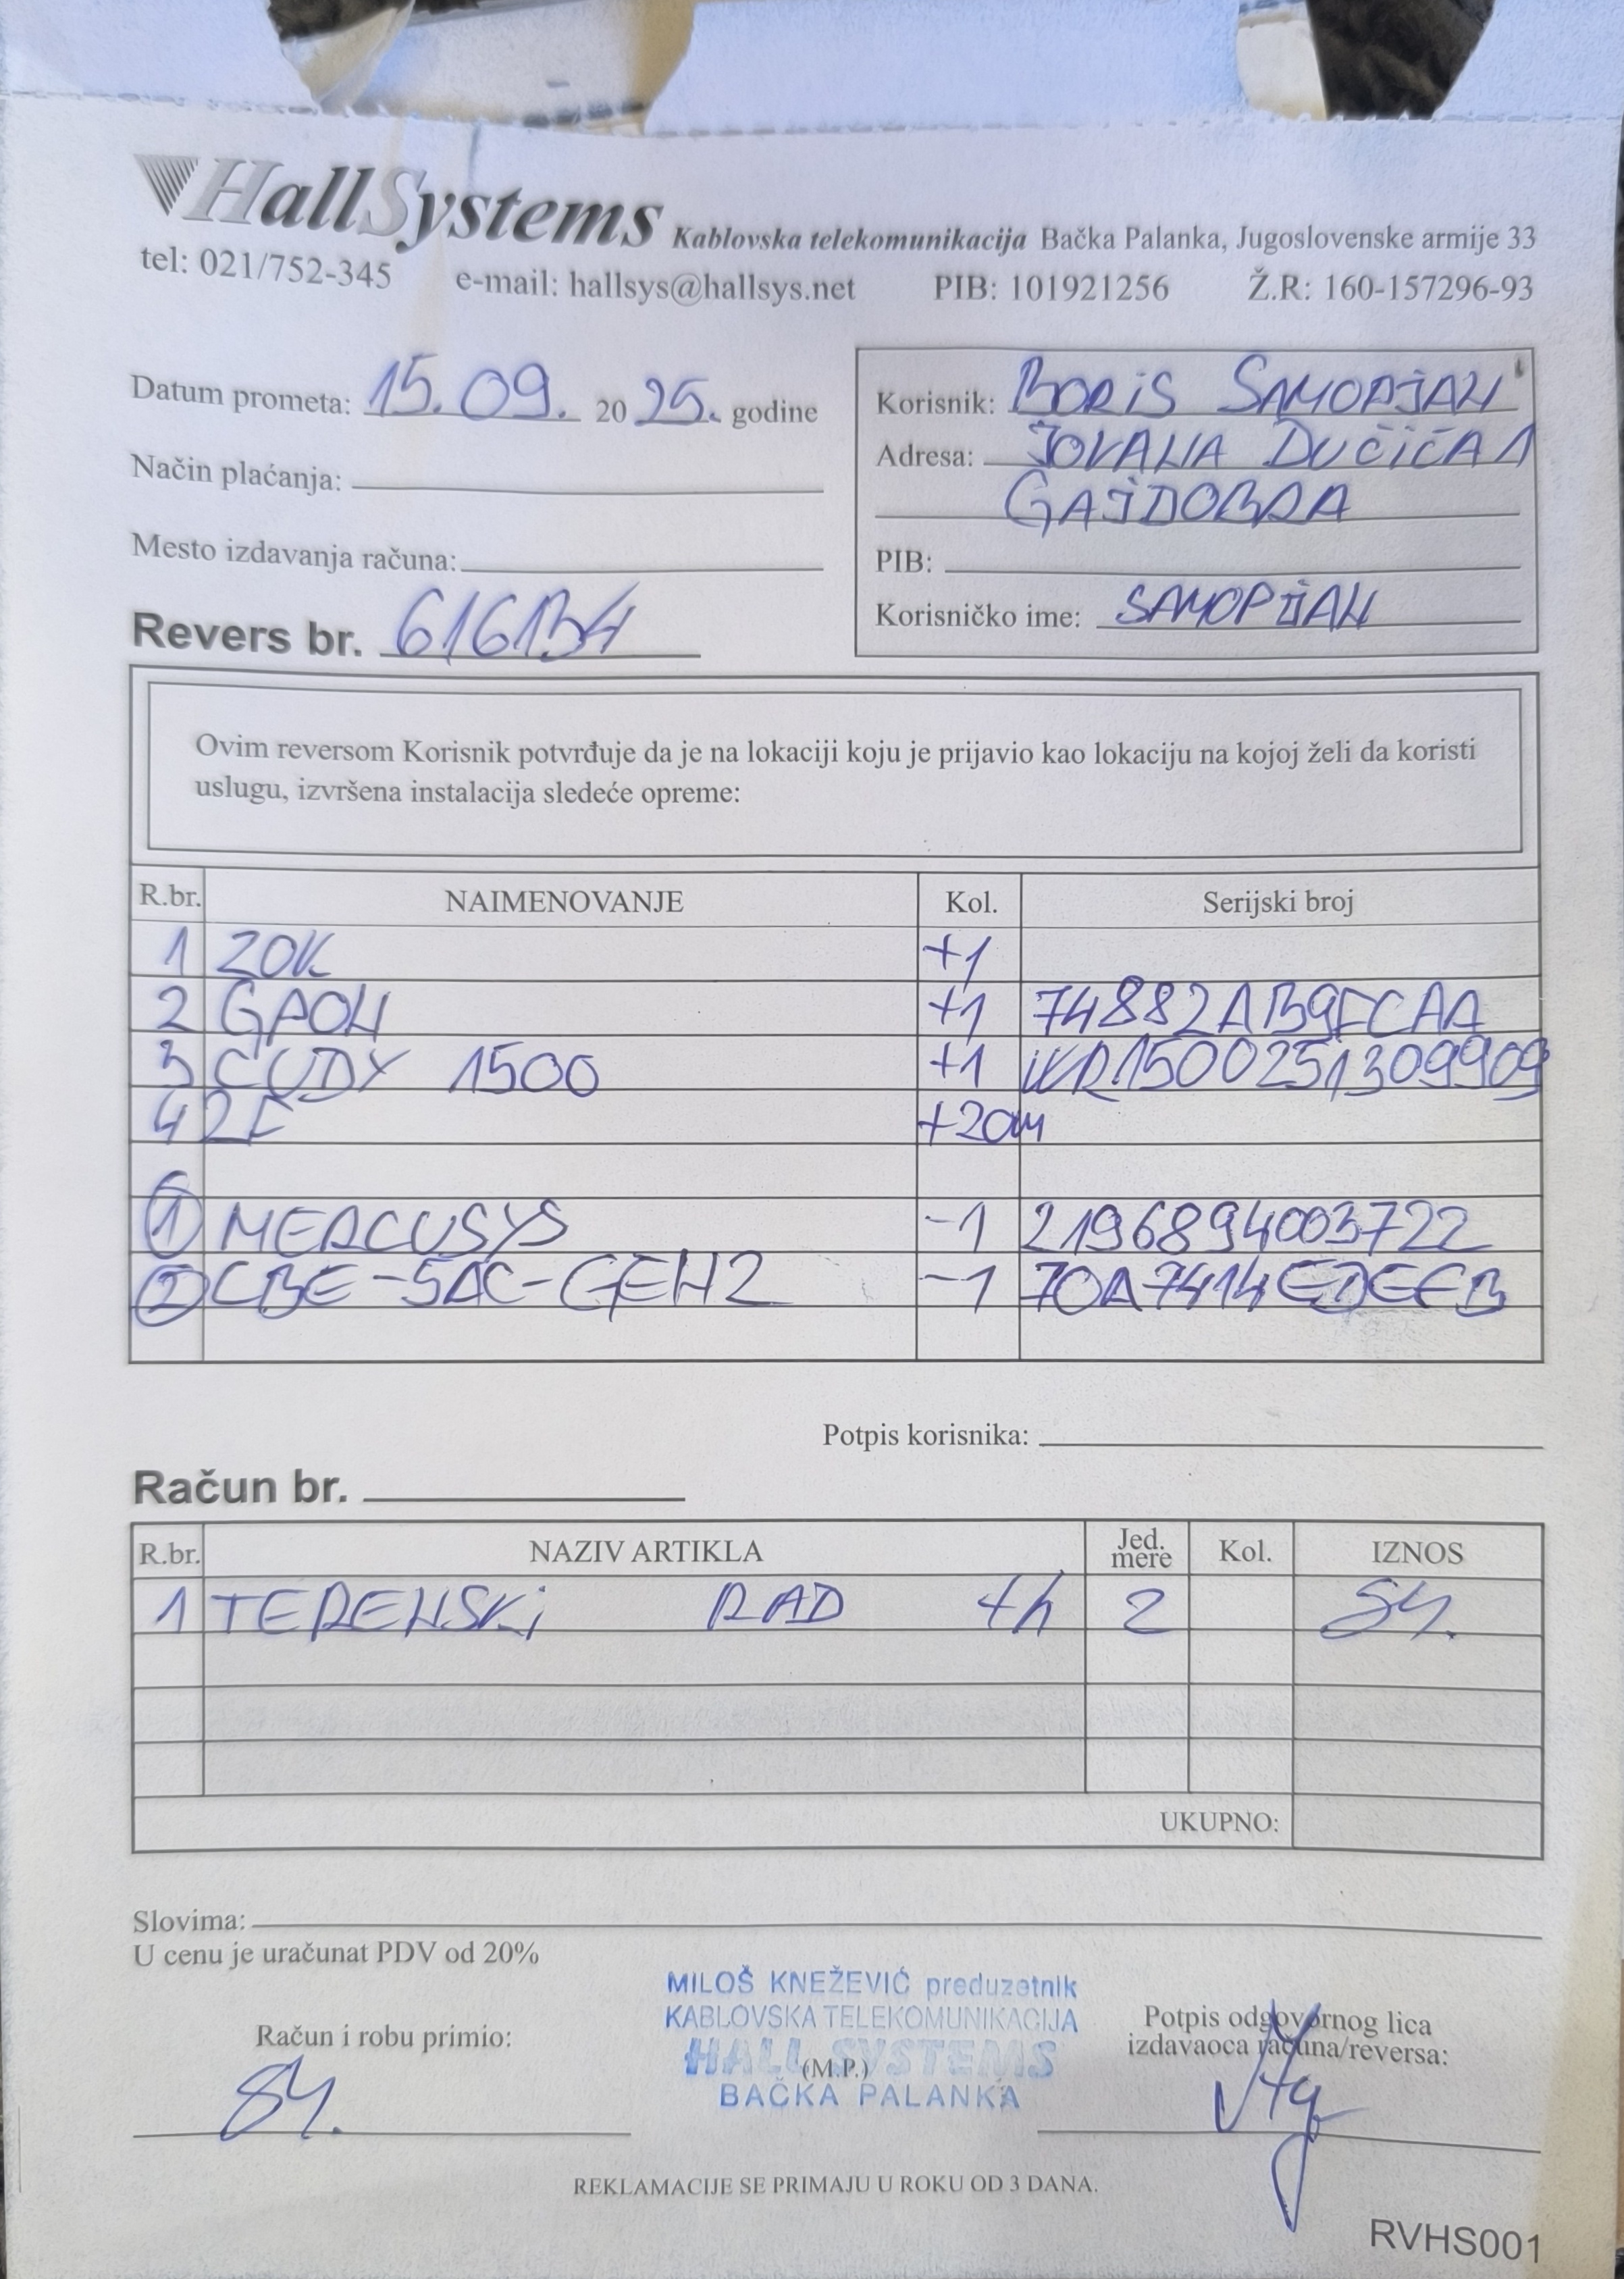 HallSystems Kablovska telekomunikacija Bačka Palanka, Jugoslovenske armije 33
tel: 021/752-345 e-mail: hallsys@hallsys.net PIB: 101921256 Ž.R: 160-157296-93
Datum prometa: 15.09. 2025. godine
Način plaćanja:
Mesto izdavanja računa:
Revers br. 616134
Korisnik: BORIS SAMOPJAN
Adresa: JOVANA DUČIĆA 1
GAJDOBRA
PIB:
Korisničko ime: SAMOPJAN
Ovim reversom Korisnik potvrđuje da je na lokaciji koju je prijavio kao lokaciju na kojoj želi da koristi
uslugu, izvršena instalacija sledeće opreme:
R.br. NAIMENOVANJE Kol. Serijski broj
1 ZOK +1
2 GPON +1 74882AB9FCAA
3 CUDY 1500 +1 WR1500251309909
4 2F +20m
1 MERCUSYS -1 2196894003722
2 CBE-5AC-GEN2 -1 70A7414EDEFB
Potpis korisnika:
Račun br.
R.br. NAZIV ARTIKLA Jed. mere Kol. IZNOS
1 TERENSKI RAD th 2
UKUPNO:
Slovima:
U cenu je uračunat PDV od 20%
MILOŠ KNEŽEVIĆ preduzetnik
KABLOVSKA TELEKOMUNIKACIJA
HALL SYSTEMS
(M.P.)
BAČKA PALANKA
Račun i robu primio:
Potpis odgovornog lica
izdavaoca računa/reversa:
REKLAMACIJE SE PRIMAJU U ROKU OD 3 DANA.
RVHS001